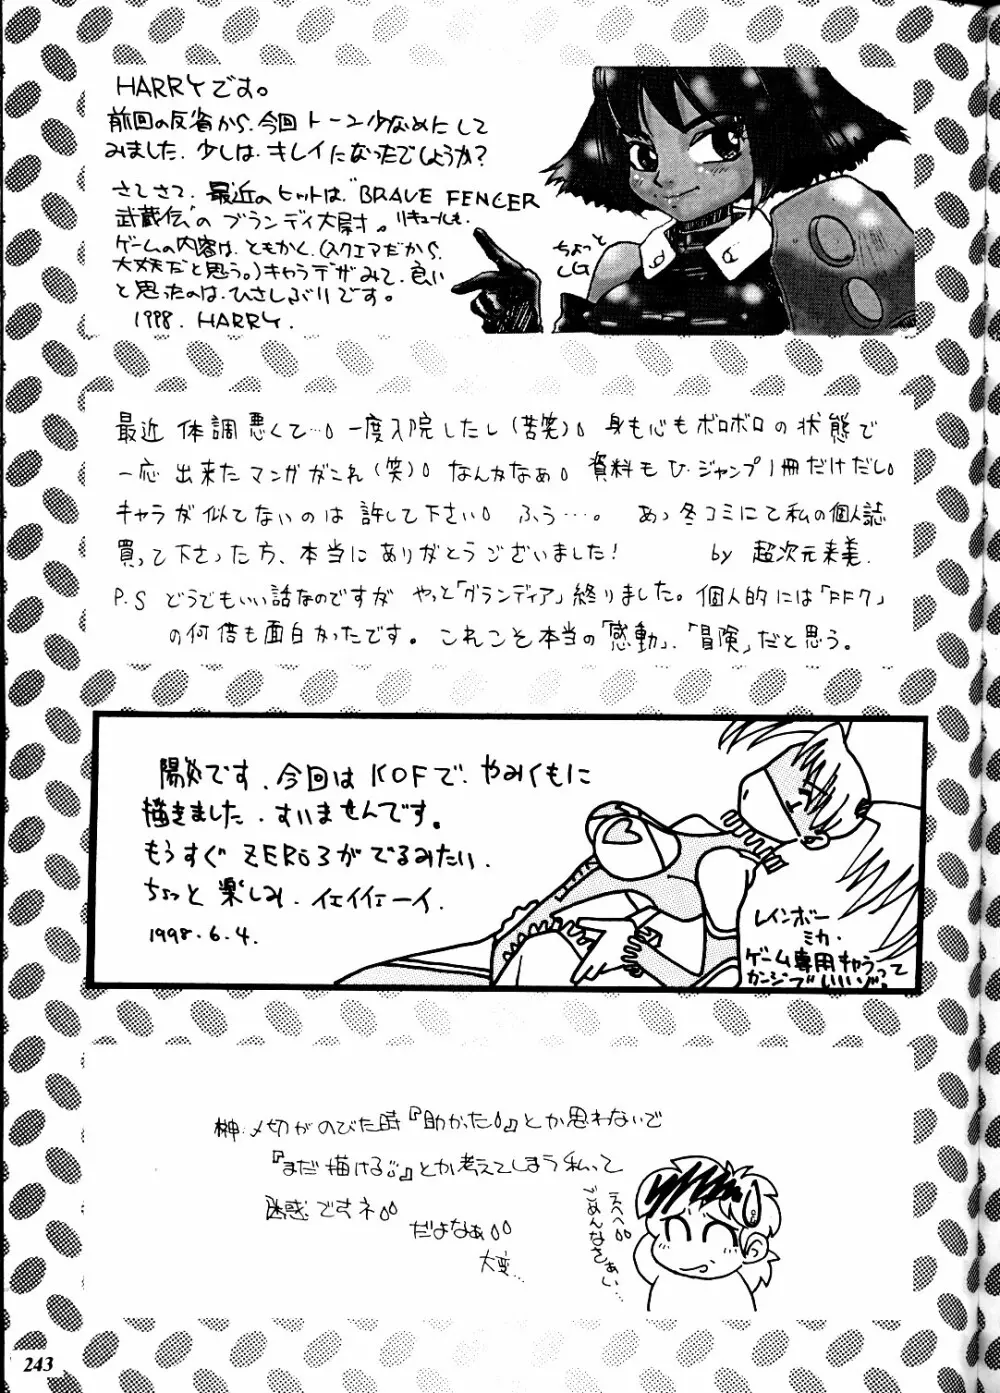 HARRYです。
前回の反省から、今回トーン少なめにして
みました。少しは、キレイになったでしょうか？
さてさて、最近のヒットは、"BRAVE FENCER
武蔵伝"のブランディ大尉。リキュールも。
ゲームの内容は、ともかく、(スクエアだから、
大丈夫だと思う。)キャラデザみて、良い
と思ったのは、ひさしぶりです。
1998. HARRY.
ちょっと
CG
最近 体調悪くて…。一度入院したし(苦笑)。身も心もボロボロの状態で
一応 出来たマンガがこれ(笑)。なんかなぁ。資料もV・ジャンプ1冊だけだし。
キャラが似てないのは許して下さい。ふう…。あっ冬コミにて私の個人誌
買って下さった方、本当にありがとうございました！ by 超次元未美.
P.S どうでもいい話なのですが やっと「グランディア」終りました。個人的には「FF7」
の何倍も面白かったです。これこそ本当の「感動」、「冒険」だと思う。
陽炎です、今回はKOFで、やみくもに
描きました。すいませんです。
もうすぐZERO3がでるみたい.
ちょっと楽しみ. イエイイエーイ.
1998.6.4.
レインボー
ミカ.
ゲーム専用キャラって
カンジでいいゾ?
榊:〆切がのびた時『助かった。』とか思わないで
『まだ描ける。』とか考えてしまう私って
迷惑ですネ。
だよなぁ。
大変…
えへへ。
ごめんなさぁい…
243